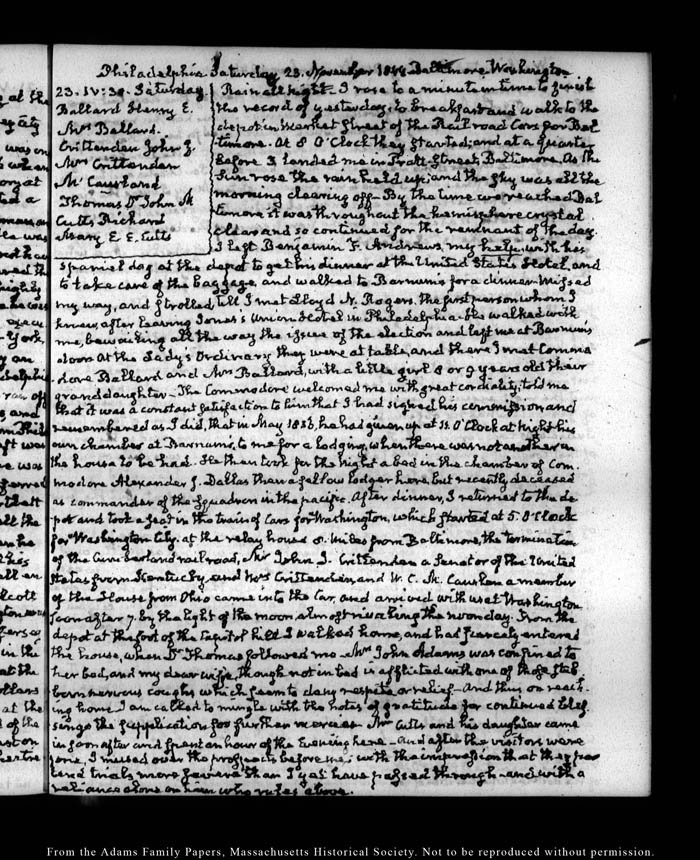 Philadelphia Saturday 23. November 1844 Baltimore Washington
23. IV:30. Saturday.
Ballard Henry E.
Mrs Ballard.
Crittenden John J.
Mrs Crittenden
McCausland
Thomas Dr John M
Cutts Richard
Mary E. E. Cutts
Rain all night. I rose to a minute in time to finish
the record of yesterday; to breakfast and walk to the
depot in Market Street of the Rail road Cars for Bal
timore. At 8 O'Clock they started; and at a quarter
before 3 landed me in Pratt Street, Baltimore. As the
Sun rose the rain held up; and the sky was all the
morning clearing off. By the time we reached Bal
timore it was throughout the hemisphere crystal
clear and so continued for the remnant of the day.
I left Benjamin F. Andrews, my help, with his
spaniel dog at the depot to get his dinner at the United States Hotel, and
to take care of the baggage, and walked to Barnums for a dinner. Missed
my way, and strolled, till I met Lloyd N. Rogers. the first person whom I
knew, after leaving Jones's Union Hotel in Philadelphia. He walked with
me, bewailing all the way the issue of the election and left me at Barnums
door. At the Lady's Ordinary, they were at table, and there I met Commo
dore Ballard and Mrs Ballard, with a little girl 8 or 9 years old their
granddaughter. The Commodore welcomed me with great cordiality; told me
that it was a constant satisfaction to him that I had signed his commission and
remembered as I did, that in May 1833, he had given up at 11. O'Clock at Night his
own chamber at Barnum's, to me for a lodging, when there was not another in
the house to be had. He then took for the night a bed in the chamber of Com.
modore Alexander J. Dallas then a fellow lodger here, but recently deceased
as commander of the Squadron in the pacific. After dinner, I returned to the de
pot and took a seat in the train of Cars for Washington, which started at 5. O'Clock
for Washington City. at the relay house 8. Miles from Baltimore, the termination
of the Cumberland railroad, Mr John J. Crittenden a Senator of the United
States from Kentucky and Mrs Crittenden, and W. C. McCauslen a member
of the House from Ohio came into the Car, and arrived with us at Washington
soon after 7. by the light of the moon almost rivalling the noonday. From the
depot at the foot of the Capitol hill I walked home, and had scarcely entered
the house, when Dr Thomas followed me. Mrs John Adams was confined to
her bed, and my dear wife, though not in bed is afflicted with one of those stub
born nervous coughs which seem to deny respite or relief. And thus on reach.
ing home I am called to mingle with the notes of gratitude for continued bles
sings the supplication for further mercies. Mr Cutts and his daughter came
in soon after and spent an hour of the Evening here. and after the visitors were
gone, I mused over the prospects before me, with the impression that they por
tend trials more severe than I yet have passed through and with a
reliance alone on him who rules above.
From the Adams Family Papers, Massachusetts Historical Society. Not to be reproduced without permission.